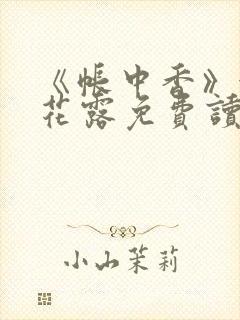 《帳中香》
花露免費讀
小山茉莉